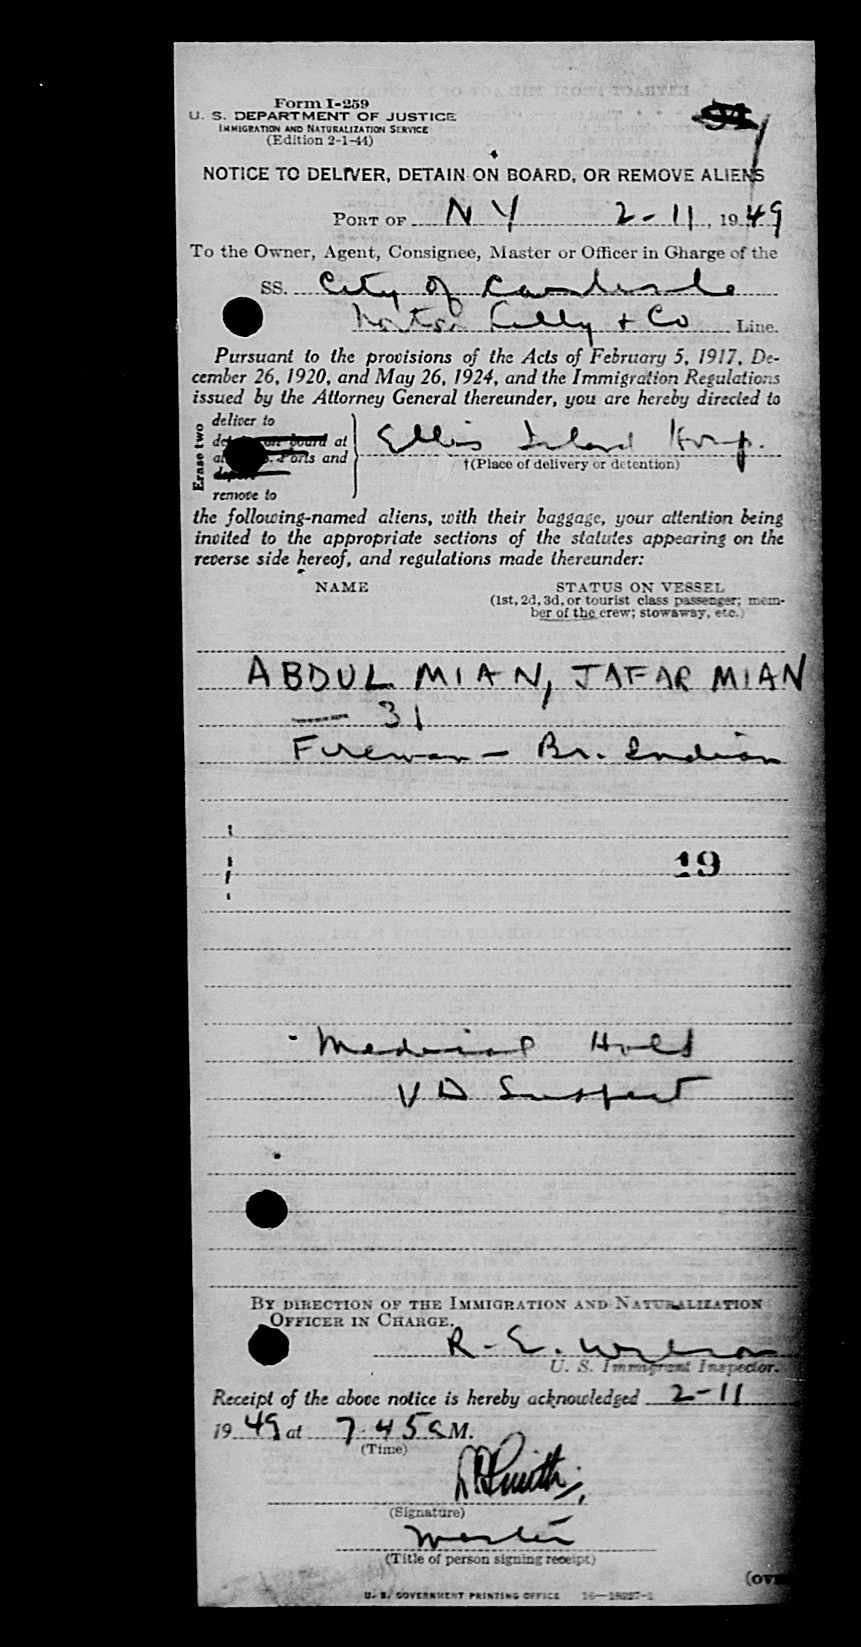 Form I-259
U. S. DEPARTMENT OF JUSTICE
IMMIGRATION AND NATURALIZATION SERVICE
(Edition 2-1-44)
NOTICE TO DELIVER, DETAIN ON BOARD, OR REMOVE ALIENS
PORT OF N Y 2-11, 1949
To the Owner, Agent, Consignee, Master or Officer in Charge of the
SS. City of Carlisle
Norton Lilly & Co Line.
Pursuant to the provisions of the Acts of February 5, 1917, De-
cember 26, 1920, and May 26, 1924, and the Immigration Regulations
issued by the Attorney General thereunder, you are hereby directed to
Erase two
deliver to
on board at
Ports and
deport
remove to
Ellis Island Hosp.
†(Place of delivery or detention)
the following-named aliens, with their baggage, your attention being
invited to the appropriate sections of the statutes appearing on the
reverse side hereof, and regulations made thereunder:
NAME STATUS ON VESSEL
(1st, 2d, 3d, or tourist class passenger; mem-
ber of the crew; stowaway, etc.)
ABDUL MIAN, JAFAR MIAN
— 31
Fireman - Br. Indian
19
Medical Hold
V D Suspect
BY DIRECTION OF THE IMMIGRATION AND NATURALIZATION
OFFICER IN CHARGE.
R. E. Wilson
U. S. Immigrant Inspector.
Receipt of the above notice is hereby acknowledged 2-11
1949 at 7.45 a M.
(Time)
Smith
(Signature)
Master
(Title of person signing receipt)
(OVE
U. S. GOVERNMENT PRINTING OFFICE